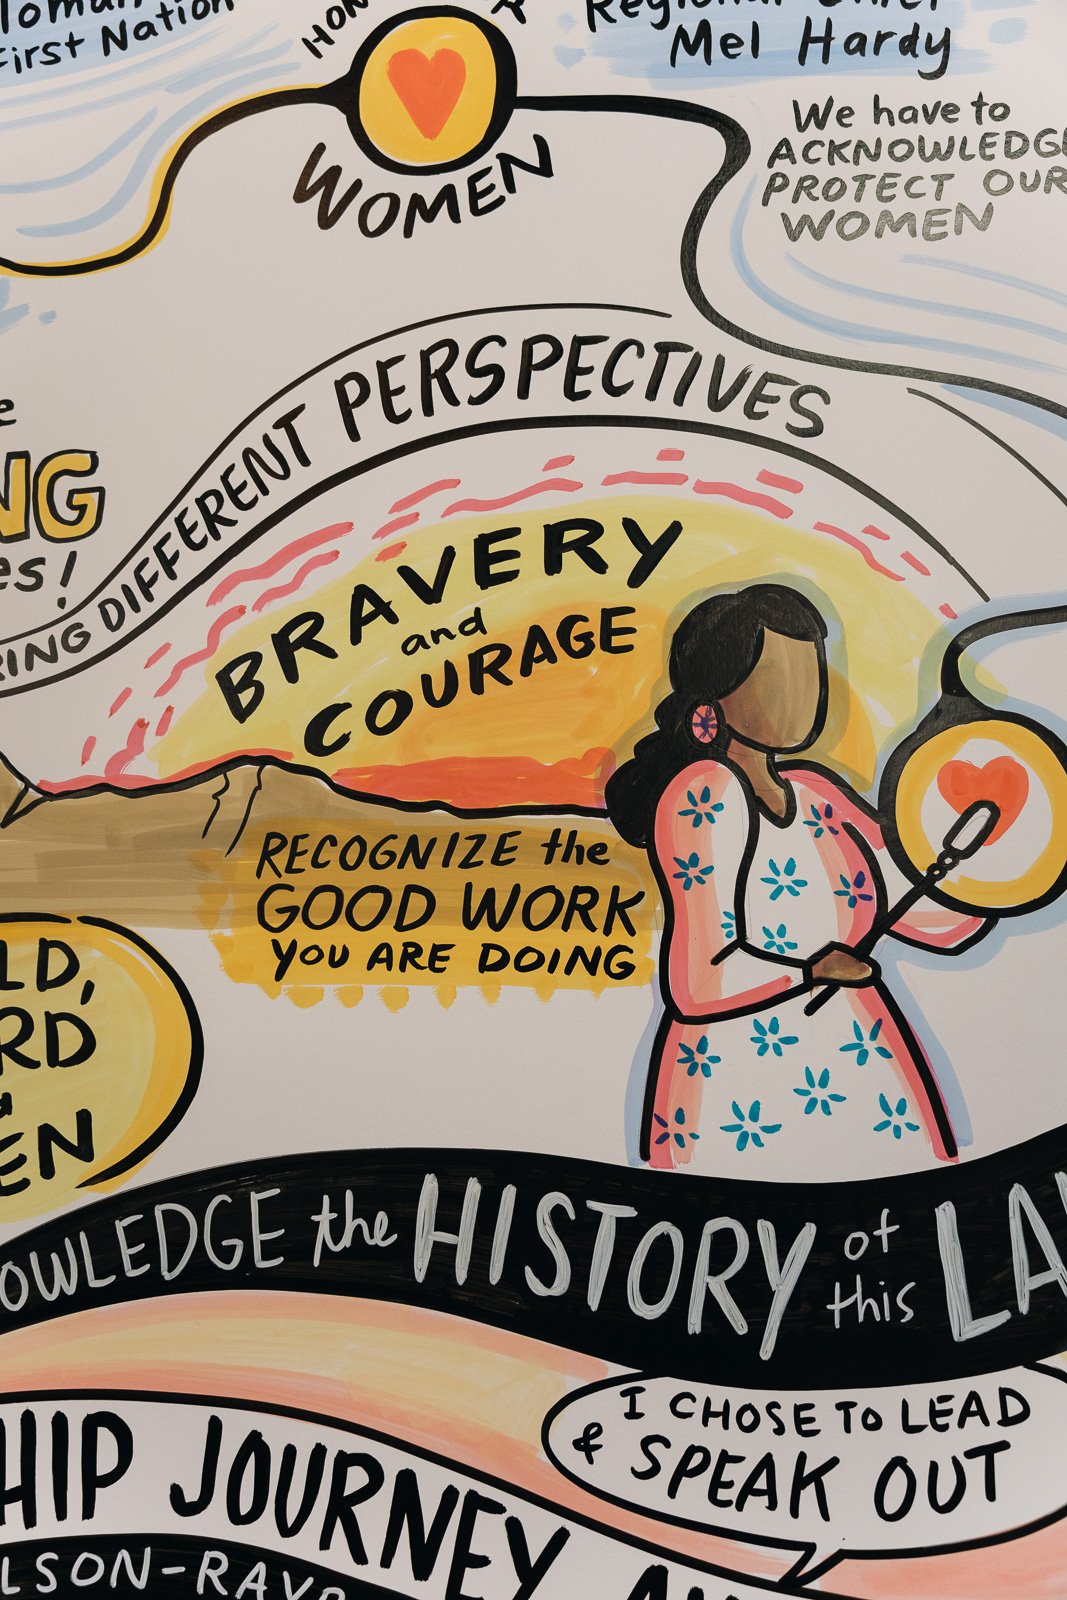 First Nation
Regional Chief
Mel Hardy
WOMEN
We have to
ACKNOWLEDGE
PROTECT OUR
WOMEN
DIFFERENT PERSPECTIVES
BRAVERY
and
COURAGE
RECOGNIZE the
GOOD WORK
YOU ARE DOING
the HISTORY of
this
I CHOSE TO LEAD
& SPEAK OUT
JOURNEY